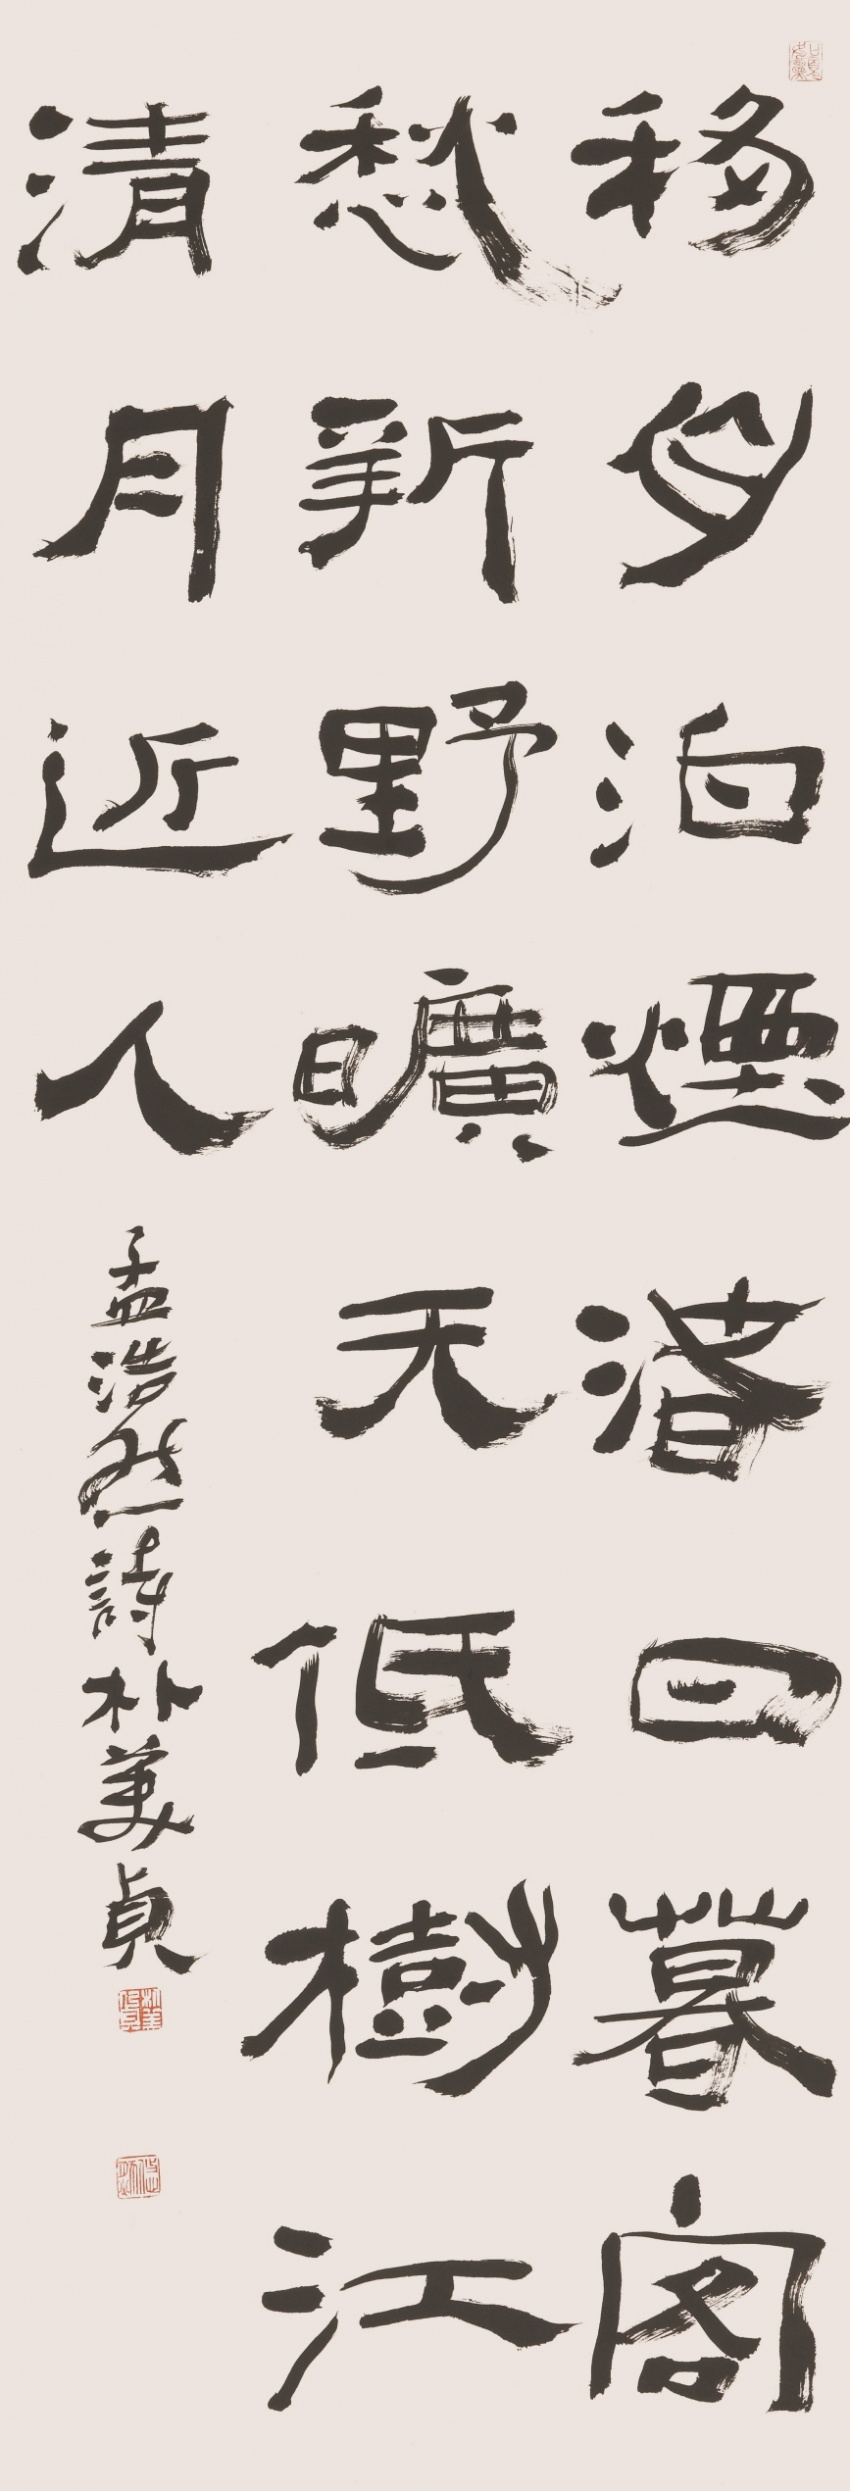 移舟泊煙渚日暮客
愁新野曠天低樹江
清月近人
孟浩然詩朴美貞